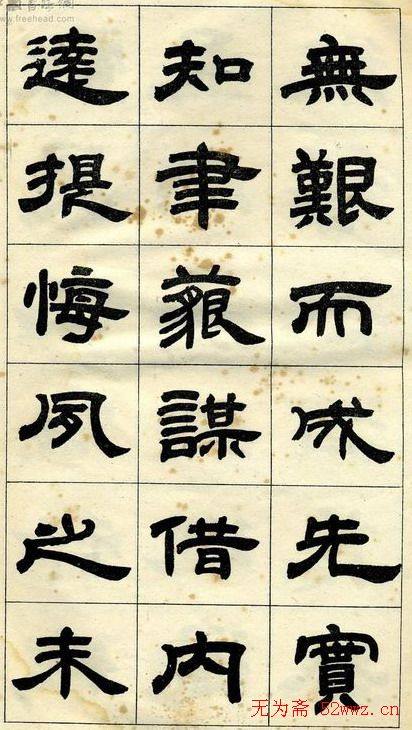 www.freehead.com
無艱而成先實
知聿藐謀借內
達提悔夙之未
无为斋 52wwz.cn